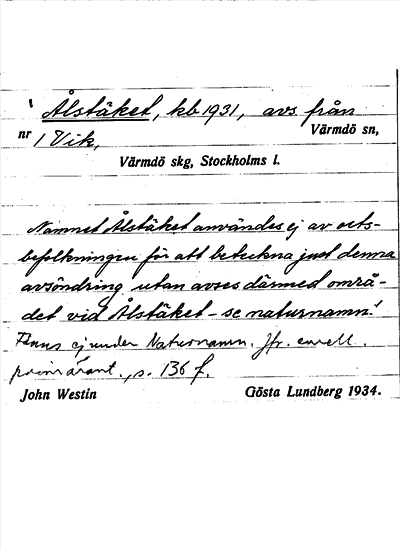 Ålstäket, kb 1931, avs från
nr 1 Vik, Värmdö sn,
Värmdö skg, Stockholms l.
Namnet Ålstäket användes ej av orts-
befolkningen för att beteckna just denna
avsöndring utan avses därmed områ-
det vid Ålstäket - se naturnamn!
Finns ej under Naturnamn. Jfr. emell.
primärant., s. 136 f.
John Westin Gösta Lundberg 1934.